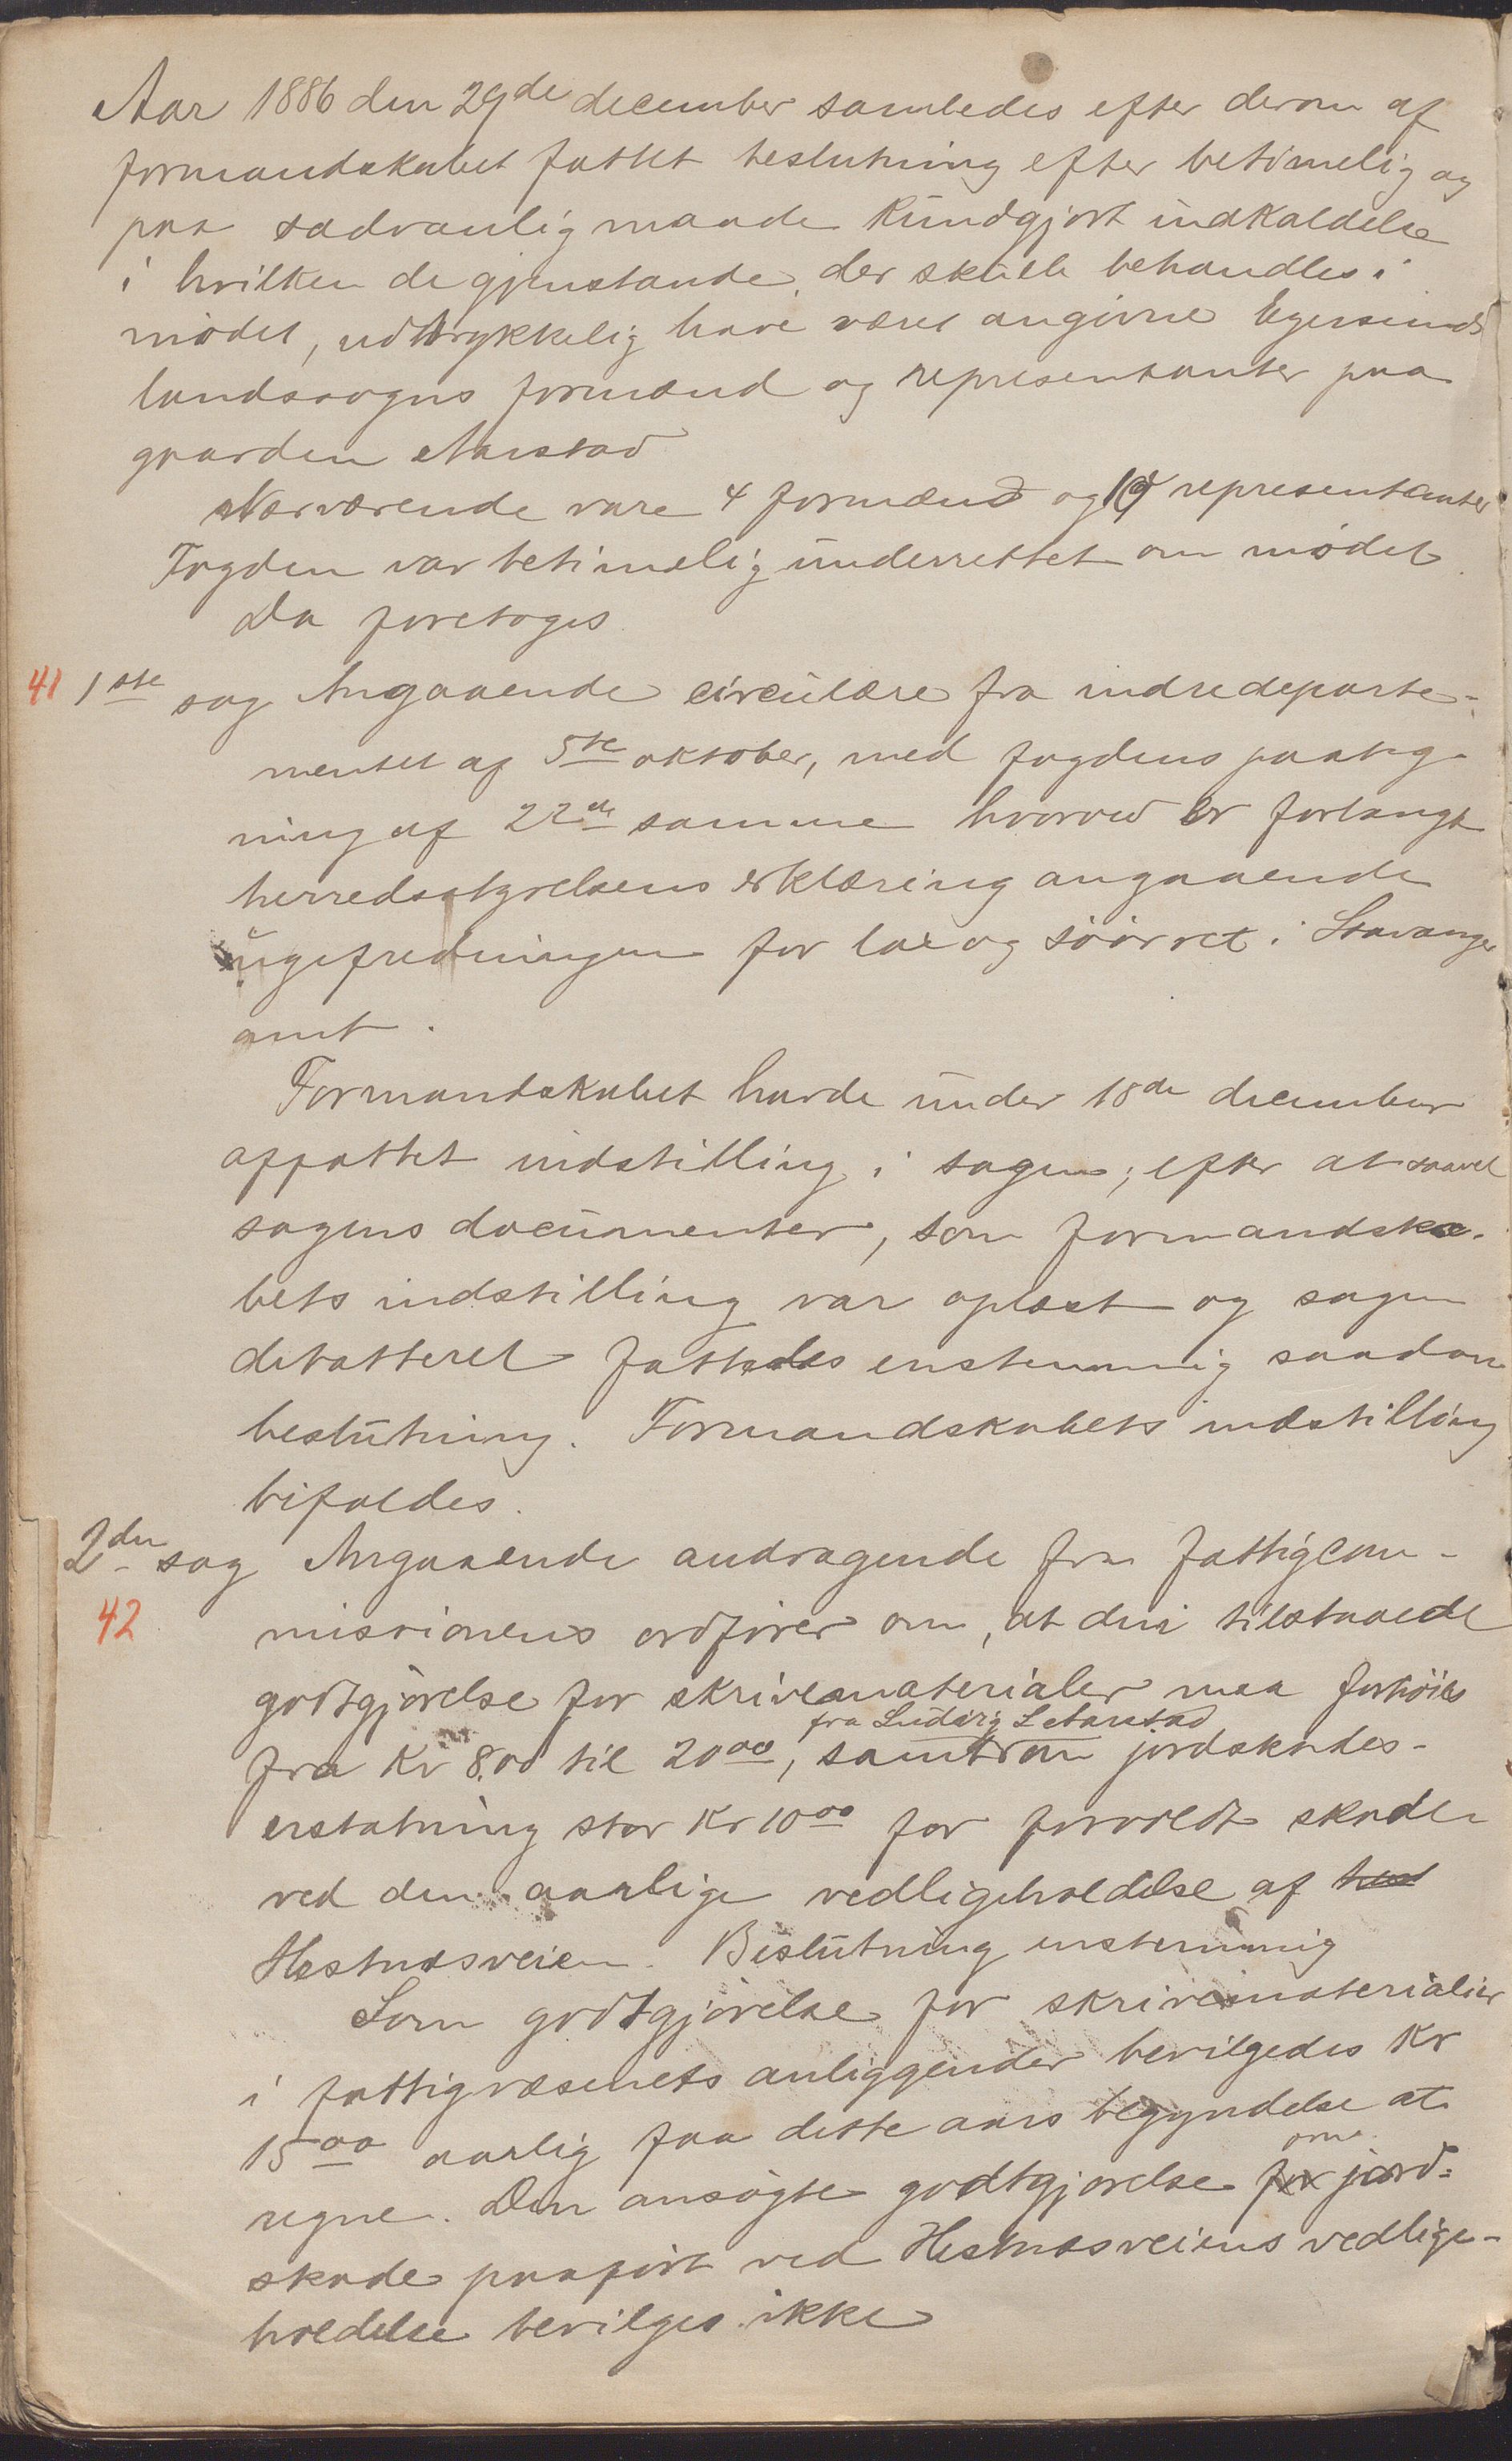 Aar 1886 den 29de december samledes efter derom af
formandskabet fattet beslutning efter betimelig og
paa sædvanlig maade kundgjort indkaldelse
i hvilken de gjenstande, der skulle behandles i
mødet, udtrykkelig have været angivne Egersunds
landsogns formænd og representanter paa
gaarden Aarstad
Nærværende vare 4 formænd og representanter
Fogden var betimelig underrettet om mødet.
Da foretoges
41 1ste sag Angaaende circulære fra indredeparte-
mentet af 5te oktober, med fogdens paateg-
ning af 22de samme hvorved er forlangt
herredsstyrelsens erklæring angaaende
ugefredningen for lax og søørret i Stavanger
amt.
Formandskabet havde under 18de december
affattet indstilling i sagen; efter at saavel
sagens documenter, som formandska-
bets indstilling var oplæst og sagen
debatteret fattedes enstemmig saadan
beslutning. Formandskabets indstilling
bifaldes.
2den sag Angaaende andragende fra fattigcom-
42 missionens ordfører om, at den tilstaaede
godtgjørelse for skrivematerialer maa forhøies
fra Ludvig L Aarstad
fra Kr 8.00 til 20 00, samt om jordskades-
erstatning stor Kr 10 00 for forvoldt skade
ved den aarlige vedligeholdelse af
Hestnæsveien. Beslutning enstemmig
Som godtgjørelse for skrivematerialier
i fattigvæsenets anliggender bevilgedes Kr
15 00 aarlig fra dette aars begyndelse at
om
regne. Den ansøgte godtgjørelse for jord-
skade paaført ved Hestnæsveiens vedlige-
holdelse bevilges ikke